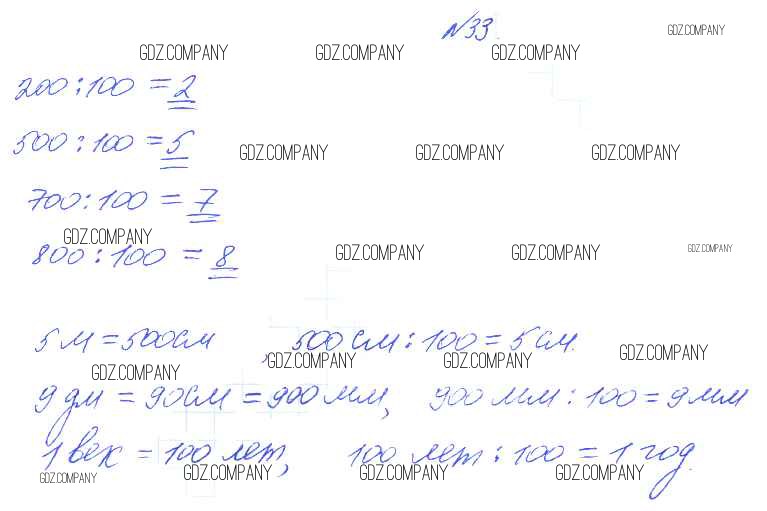 N33.
GDZ.COMPANY
GDZ.COMPANY GDZ.COMPANY GDZ.COMPANY
200 : 100 = 2
500 : 100 = 5
GDZ.COMPANY GDZ.COMPANY GDZ.COMPANY
700 : 100 = 7
GDZ.COMPANY
800 : 100 = 8
GDZ.COMPANY GDZ.COMPANY GDZ.COMPANY
5 м = 500 см, 500 см : 100 = 5 см.
GDZ.COMPANY GDZ.COMPANY GDZ.COMPANY GDZ.COMPANY
9 дм = 90 см = 900 мм, 900 мм : 100 = 9 мм
1 век = 100 лет, 100 лет : 100 = 1 год.
GDZ.COMPANY GDZ.COMPANY GDZ.COMPANY GDZ.COMPANY